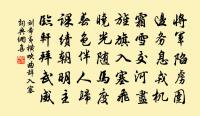 將軍陷虜圍
邊務息戎機
霜雪交河盡
旌旗入塞飛
曉光隨馬度
春色伴人歸
課績朝明主
臨軒拜武威
劉希夷橫吹曲辭入塞
詞典網集